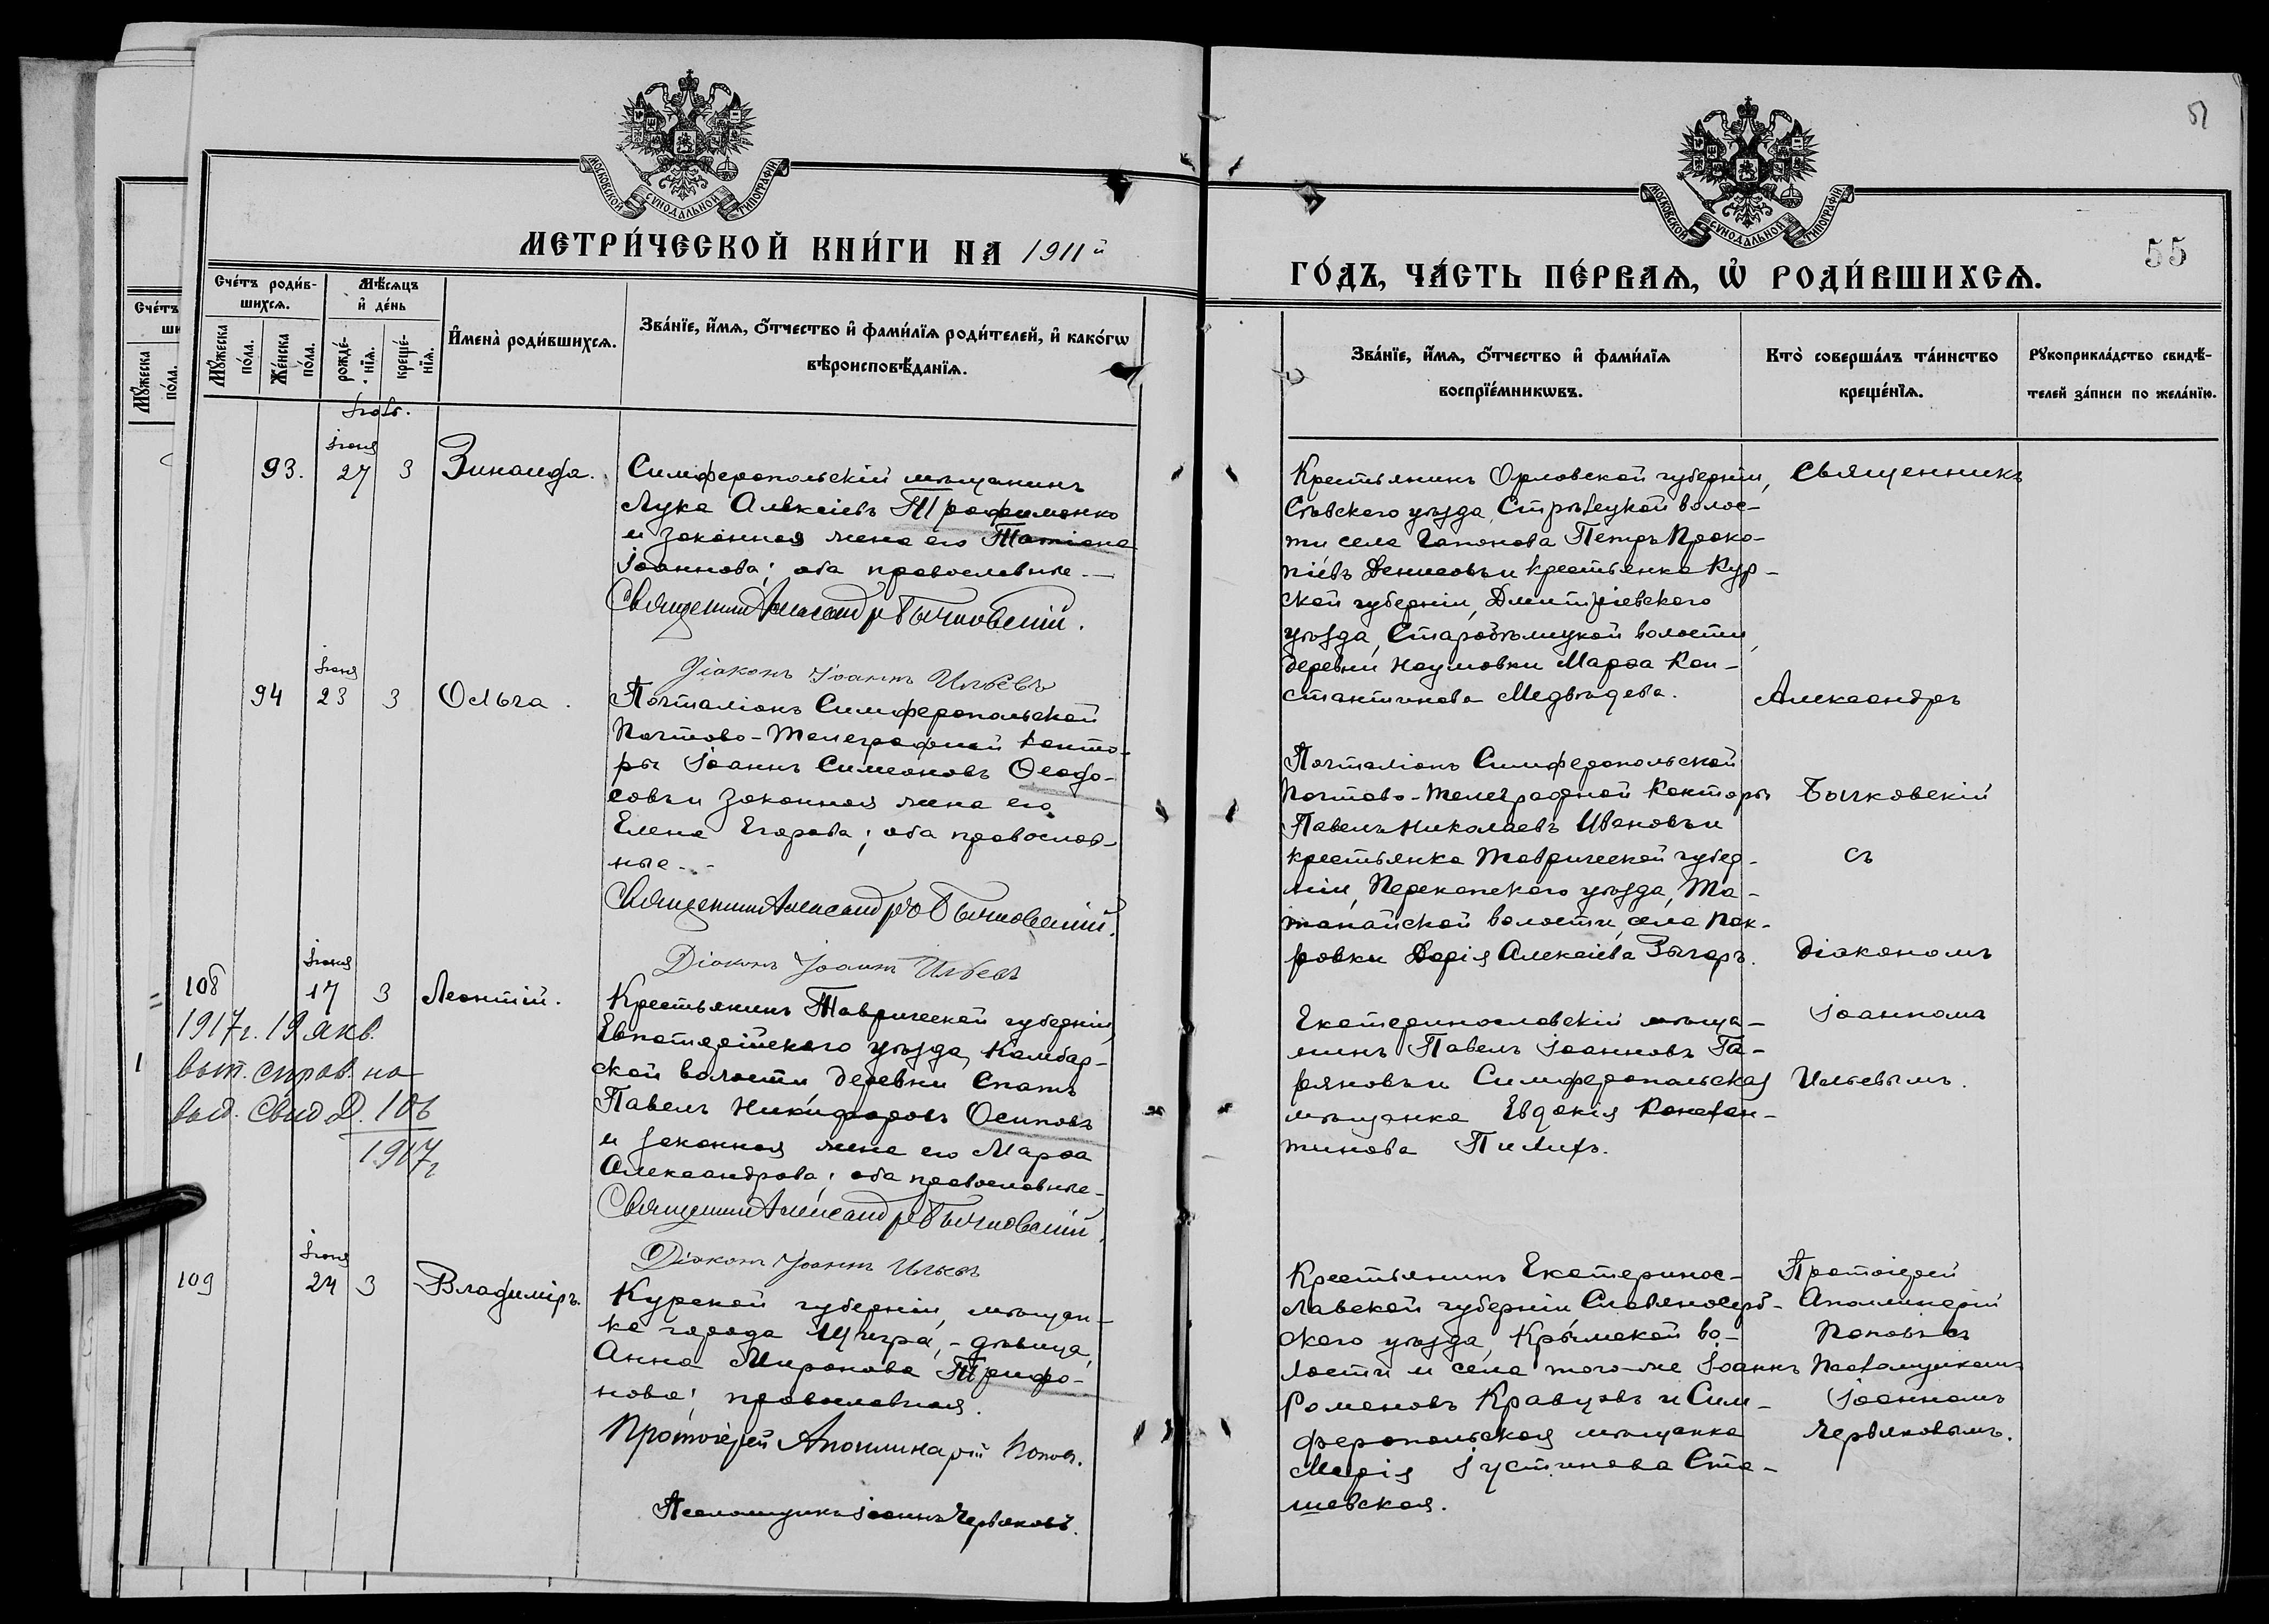 МОСКОВСКОЙ СУНОДАЛЬНОЙ ТИПОГРАФІИ
МЕТРИ́ЧЕСКОЙ КНИ́ГИ НА 1911й
Сче́тъ роди́в-
шихсѧ.
Мꙋ́жеска
по́ла.
Же́нска
по́ла.
Мѣ́сѧцъ
и҆ де́нь
рожде́-
нїѧ.
креще́-
нїѧ.
И҆мена̀ роди́вшихсѧ.
Зва́нїе, и҆́мѧ, ѻ҆́тчество и҆ фами́лїѧ роди́телей, и҆ како́гѡ
вѣроисповѣ́данїѧ.
Іюль.
Іюня
93. 27 3 Зинаида.
Симферопольскій мѣщанинъ
Лука Алексіевъ Трофименко
и законная жена его Татіана
Іоаннова; оба православные. —
Священникъ Александръ Бычковскій.
Діаконъ Іоаннъ Ильевъ
Іюня
94 23 3 Ольга.
Почталіонъ Симферопольской
Почтово-Телеграфной Конто-
ры Іоаннъ Симеоновъ Ѳеодо-
совъ и законная жена его
Елена Егорова; оба православ-
ные. -
Священникъ Александръ Бычковскій.
Діаконъ Іоаннъ Ильевъ
Іюня
108 17 3 Леонтій.
1917 г. 19 янв.
вып. справ. на
выд. свид. Д. 106
1917 г
Крестьянинъ Таврической губерніи,
Евпаторійскаго уѣзда, Камбар-
ской волости, деревни Спатъ
Павелъ Никифоровъ Осиповъ
и законная жена его Марѳа
Александрова; оба православные -
Священникъ Александръ Бычковскій.
Діаконъ Іоаннъ Ильевъ
Іюня
109 24 3 Владиміръ.
Курской губерніи, мѣщан-
ка города Щигра, - дѣвица,
Анна Миронова Трифо-
нова; православная.
Протоіерей Аполлинарій Поповъ.
Псаломщикъ Іоаннъ Червяковъ.
МОСКОВСКОЙ СУНОДАЛЬНОЙ ТИПОГРАФІИ
55
ГО́ДЪ, ЧА́СТЬ ПЕ́РВАѦ, Ѡ҆ РОДИ́ВШИХСѦ.
Зва́нїе, и҆́мѧ, ѻ҆́тчество и҆ фами́лїѧ
воспрїе́мникѡвъ.
Кто̀ соверша́лъ та́инство
креще́нїѧ.
Рꙋкоприкла́дство свидѣ́-
телей за́писи по жела́нїю.
Крестьянинъ Орловской губерніи,
Сѣвскаго уѣзда, Стрѣлецкой волос-
ти села Гапонова Петръ Проко-
піевъ Денисовъ и крестьянка Кур-
ской губерніи, Дмитріевскаго
уѣзда, Старобѣлицкой волости,
деревни Наумовки Марѳа Кон-
стантинова Медвѣдева.
Почталіонъ Симферопольской
Почтово-Телеграфной Конторы
Павелъ Николаевъ Ивановъ и
крестьянка Таврической губер-
ніи, Перекопскаго уѣзда, Та-
танайской волости, села Пок-
ровки Дарія Алексіева Зычаръ.
Екатеринославскій мѣща-
нинъ Павелъ Іоанновъ Га-
ряновъ и Симферопольская
мѣщанка Евдокія Констан-
тинова Пилихъ.
Священникъ
Александръ
Бычковскій
съ
діакономъ
Іоанномъ
Ильевымъ.
Крестьянинъ Екатеринос-
лавской губерніи Славяносерб-
скаго уѣзда, Крымской во-
лости и села того-же Іоаннъ
Романовъ Кравцовъ и Сим-
феропольская мѣщанка
Марія Іустинова Ста-
шевская.
Протоіерей
Аполлинарій
Поповъ съ
Псаломщикомъ
Іоанномъ
Червяковымъ.